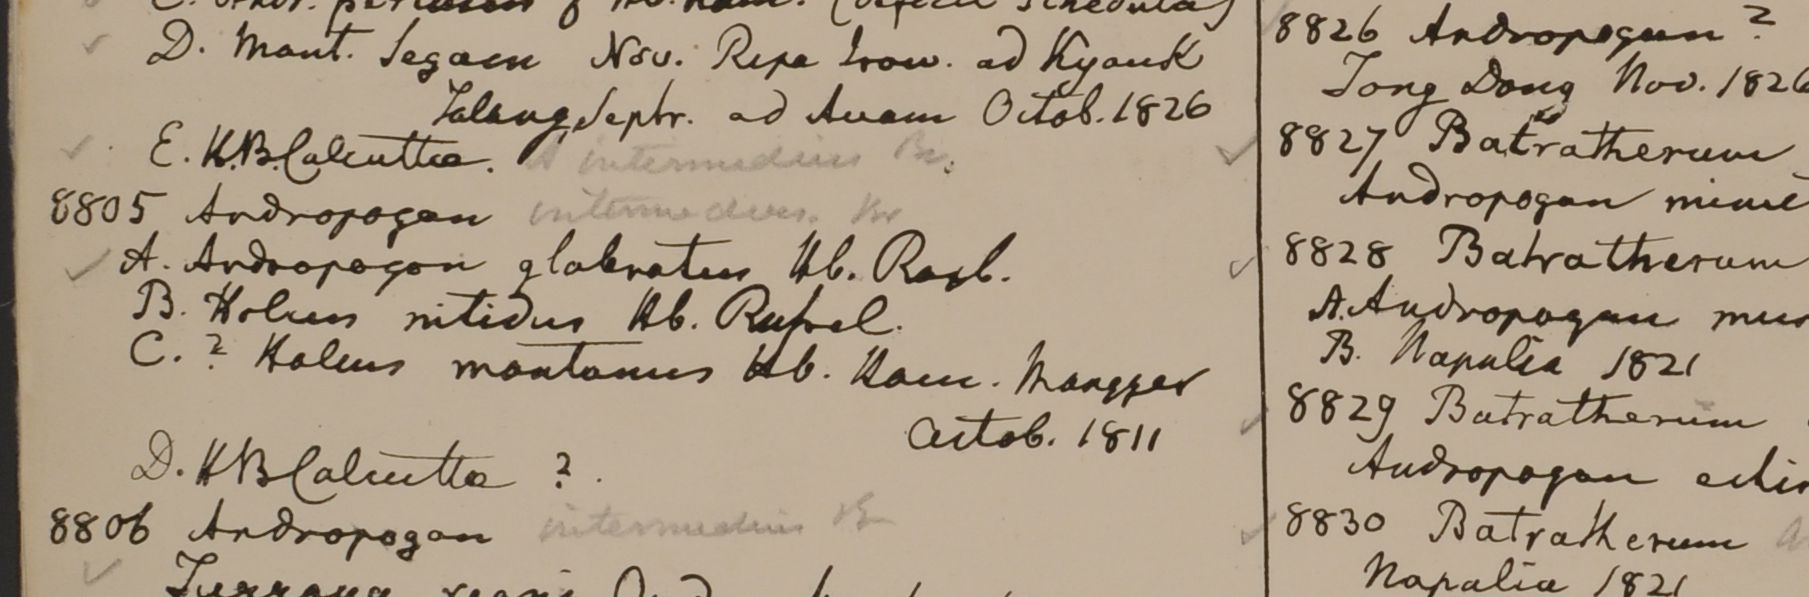 D. Mont. Segaen Nov. Ripa Irow. ad Kyouk
Talang, Septr. ad Avam Octob. 1826
E. H.B. Calcutta. A intermedius Br.
8805 Andropogon intermedius. Br
A. Andropogon glabratus Hb. Roxb.
B. Holcus nitidus Hb. Russel.
C. ? Holcus montanus Hb. Ham. Mongger
Octob. 1811
D. HB Calcutta ?.
8806 Andropogon intermedius Br
8826 Andropogon ?
Tong Dong Nov. 1826
8827 Batratherum
Andropogon
8828 Batratherum
A. Andropogon
B. Napalia 1821
8829 Batratherum
Andropogon
8830 Batratherum
Napalia 1821